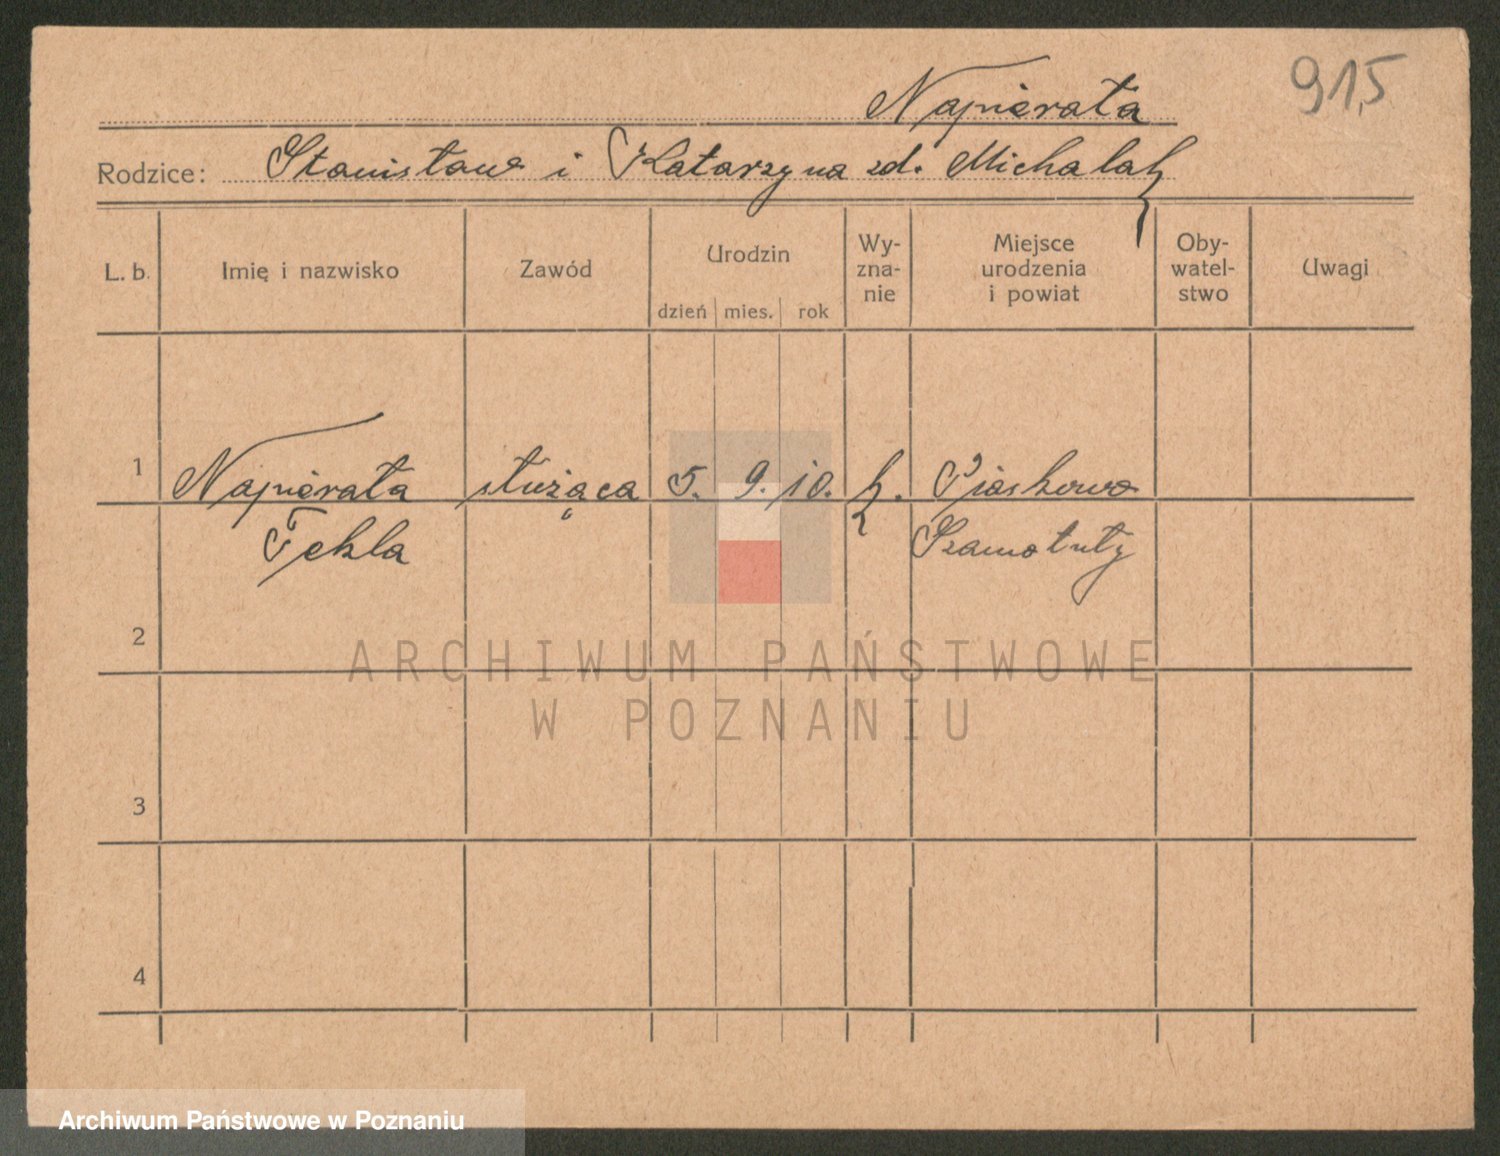 915
Napierała
Rodzice: Stanisław i Katarzyna zd. Michalak
L. b. Imię i nazwisko Zawód Urodzin dzień mies. rok Wy-zna-nie Miejsce urodzenia i powiat Oby-watel-stwo Uwagi
1 Napierała służąca 5. 9. 10. k. Piaskowo
Tekla Szamotuły
2
ARCHIWUM PAŃSTWOWE
W POZNANIU
3
4
Archiwum Państwowe w Poznaniu